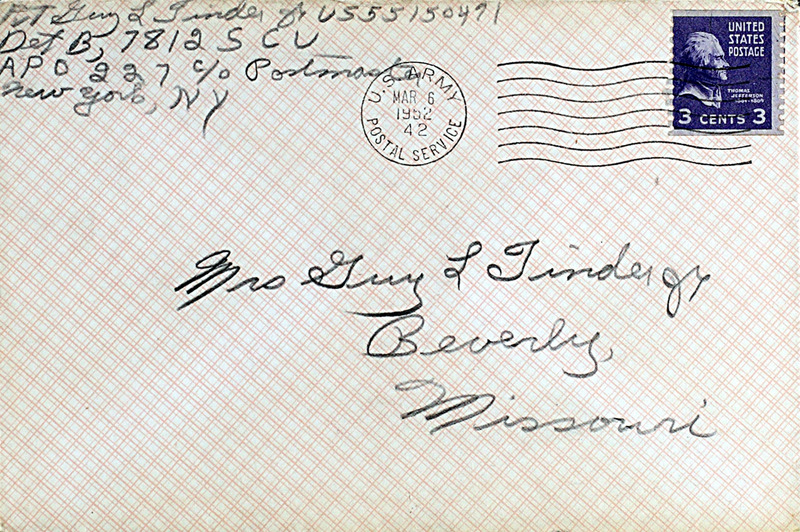 Pvt Guy L Tinder Jr US55150471
Det B, 7812 S C U
APO 227 c/o Postmaster
New York, NY
U.S. ARMY
MAR 6
1952
42
POSTAL SERVICE
UNITED
STATES
POSTAGE
THOMAS
JEFFERSON
1801-1809
3 CENTS 3
Mrs Guy L Tinder Jr
Beverly,
Missouri